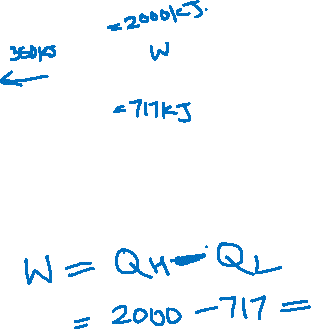 = 2000KJ.
350KJ W
= 717KJ
W = QH - QL
= 2000 - 717 =